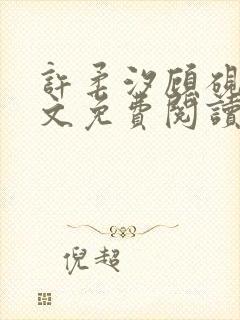 許柔汐顧硯
文免費閱讀
倪超